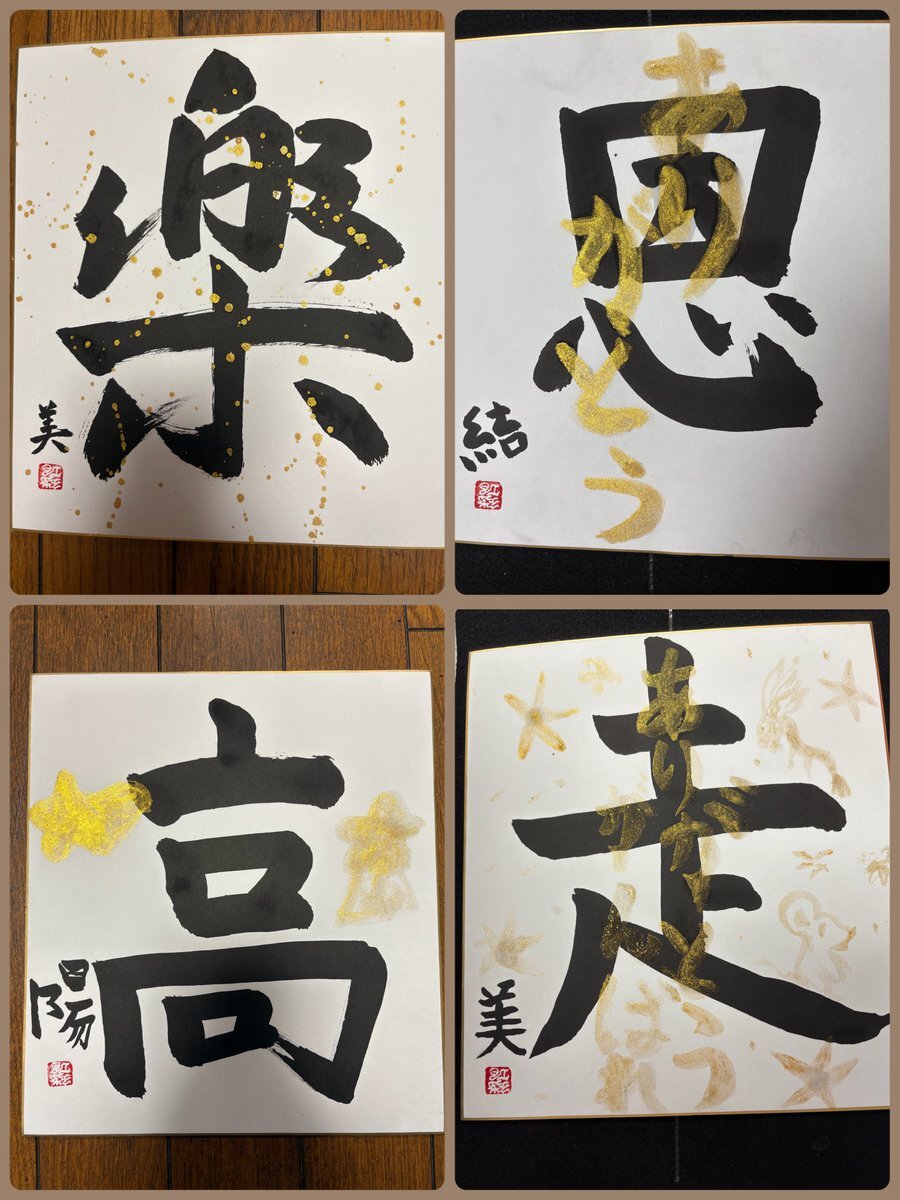 樂
美
恩
ありがとう
結
高
陽
走
ありがとう
がんばれ
美